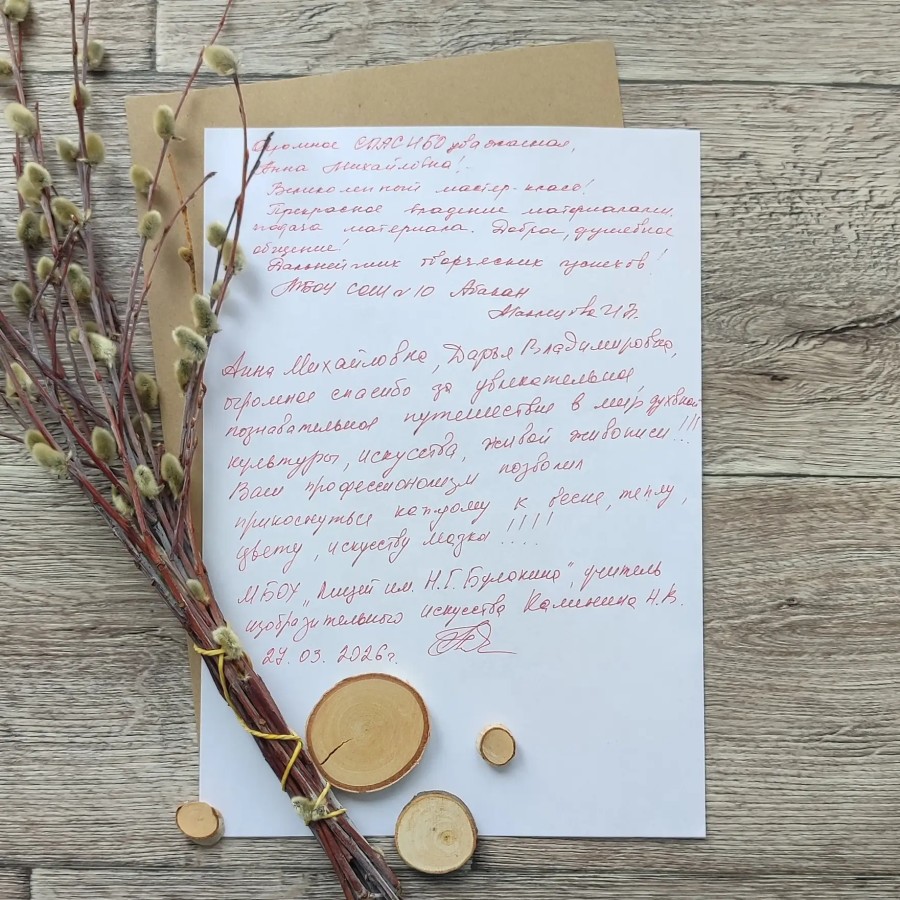 Огромное СПАСИБО уважаемая,
Анна Михайловна!
Великолепный мастер-класс!
Прекрасное владение материалами,
подача материала. Доброе, душевное
общение!
Дальнейших творческих успехов!
МБОУ СОШ №10 Абакан
И.В.
Анна Михайловна, Дарья Владимировна,
огромное спасибо за увлекательное
познавательное путешествие в мир духовной
культуры, искусства, живой живописи!!!
Ваш профессионализм позволил
прикоснуться каждому к весне, теплу,
цвету, искусству мазка!!!!
МБОУ "Лицей им. Н.Г. Булакина", учитель
изобразительного искусства Калинина Н.В.
27.03.2026г.